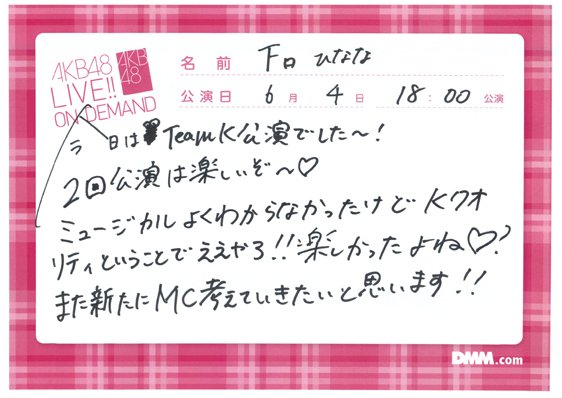 AKB48
LIVE!!
ON DEMAND
AKB
48
名前 下口 ひなな
公演日 6月 4日 18:00 公演
今日は TeamK公演でした〜!
2回公演は楽しいぞ〜♡
ミュージカルよくわからなかったけど Kクオ
リティということでええやろ!!楽しかったよね♡?
また新たにMC考えていきたいと思います!!
DMM.com